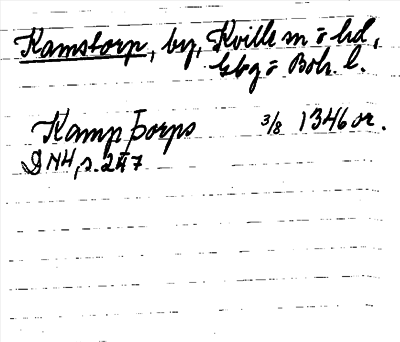 Kamstorp, by, Kville sn o hd,
Gbg o Boh. l.
Kamp þorps 3/8 1346 or.
DN4, s. 247